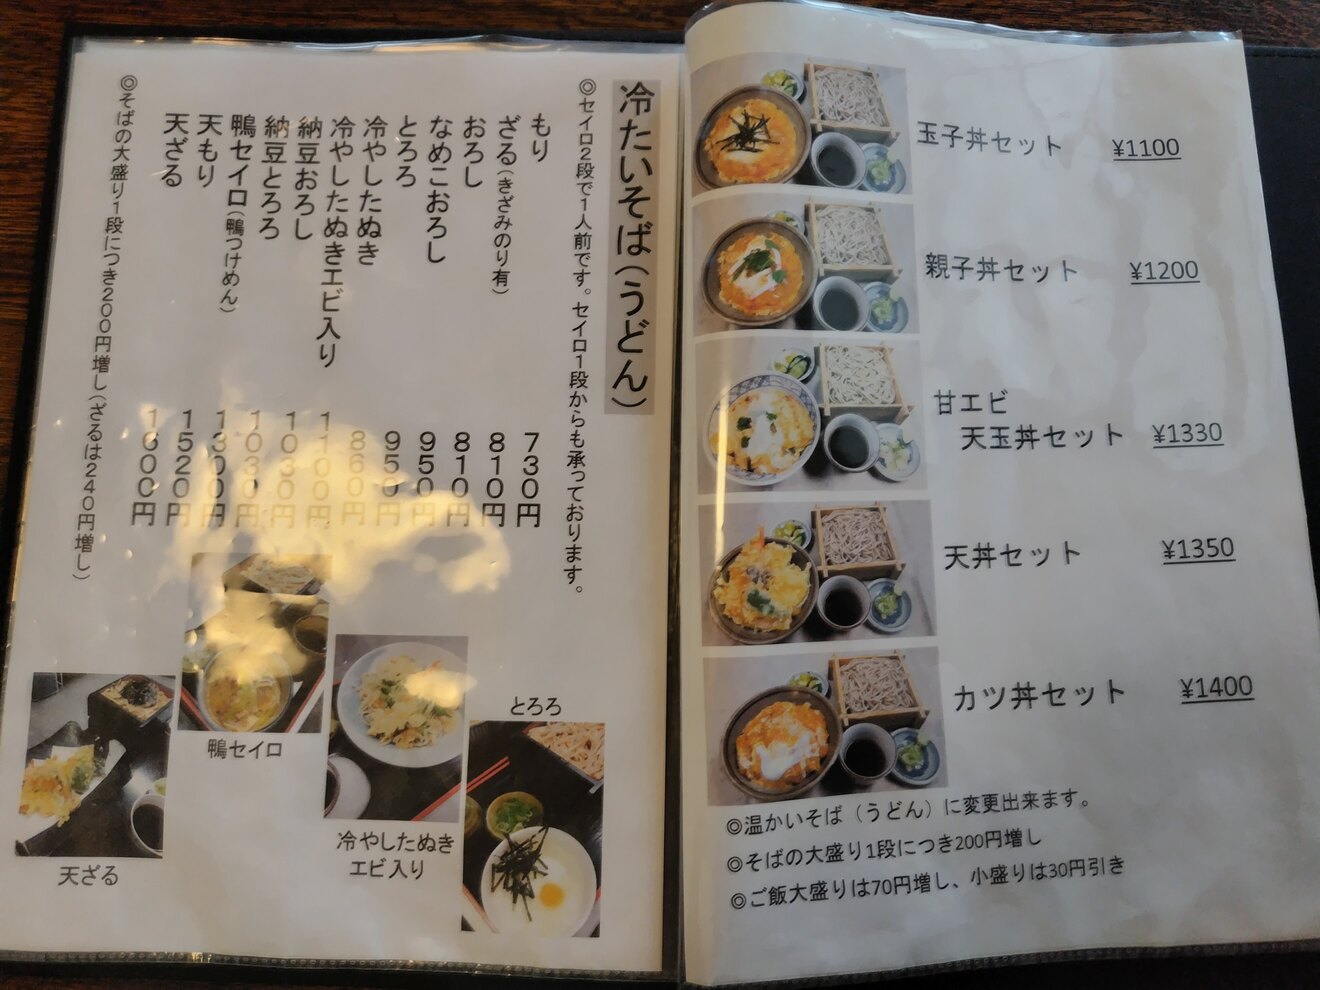 冷たいそば(うどん)
◎セイロ2段で1人前です。セイロ1段からも承っております。
もり 730円
ざる(きざみのり有) 810円
おろし 810円
なめこおろし 950円
とろろ 950円
冷やしたぬき 860円
冷やしたぬきエビ入り 1100円
納豆おろし 1030円
納豆とろろ 1030円
鴨セイロ(鴨つけめん) 1300円
天もり 1520円
天ざる 1600円
◎そばの大盛り1段につき200円増し(ざるは240円増し)
とろろ
冷やしたぬき
エビ入り
鴨セイロ
天ざる
玉子丼セット ¥1100
親子丼セット ¥1200
甘エビ
天玉丼セット ¥1330
天丼セット ¥1350
カツ丼セット ¥1400
◎温かいそば（うどん）に変更出来ます。
◎そばの大盛り1段につき200円増し
◎ご飯大盛りは70円増し、小盛りは30円引き